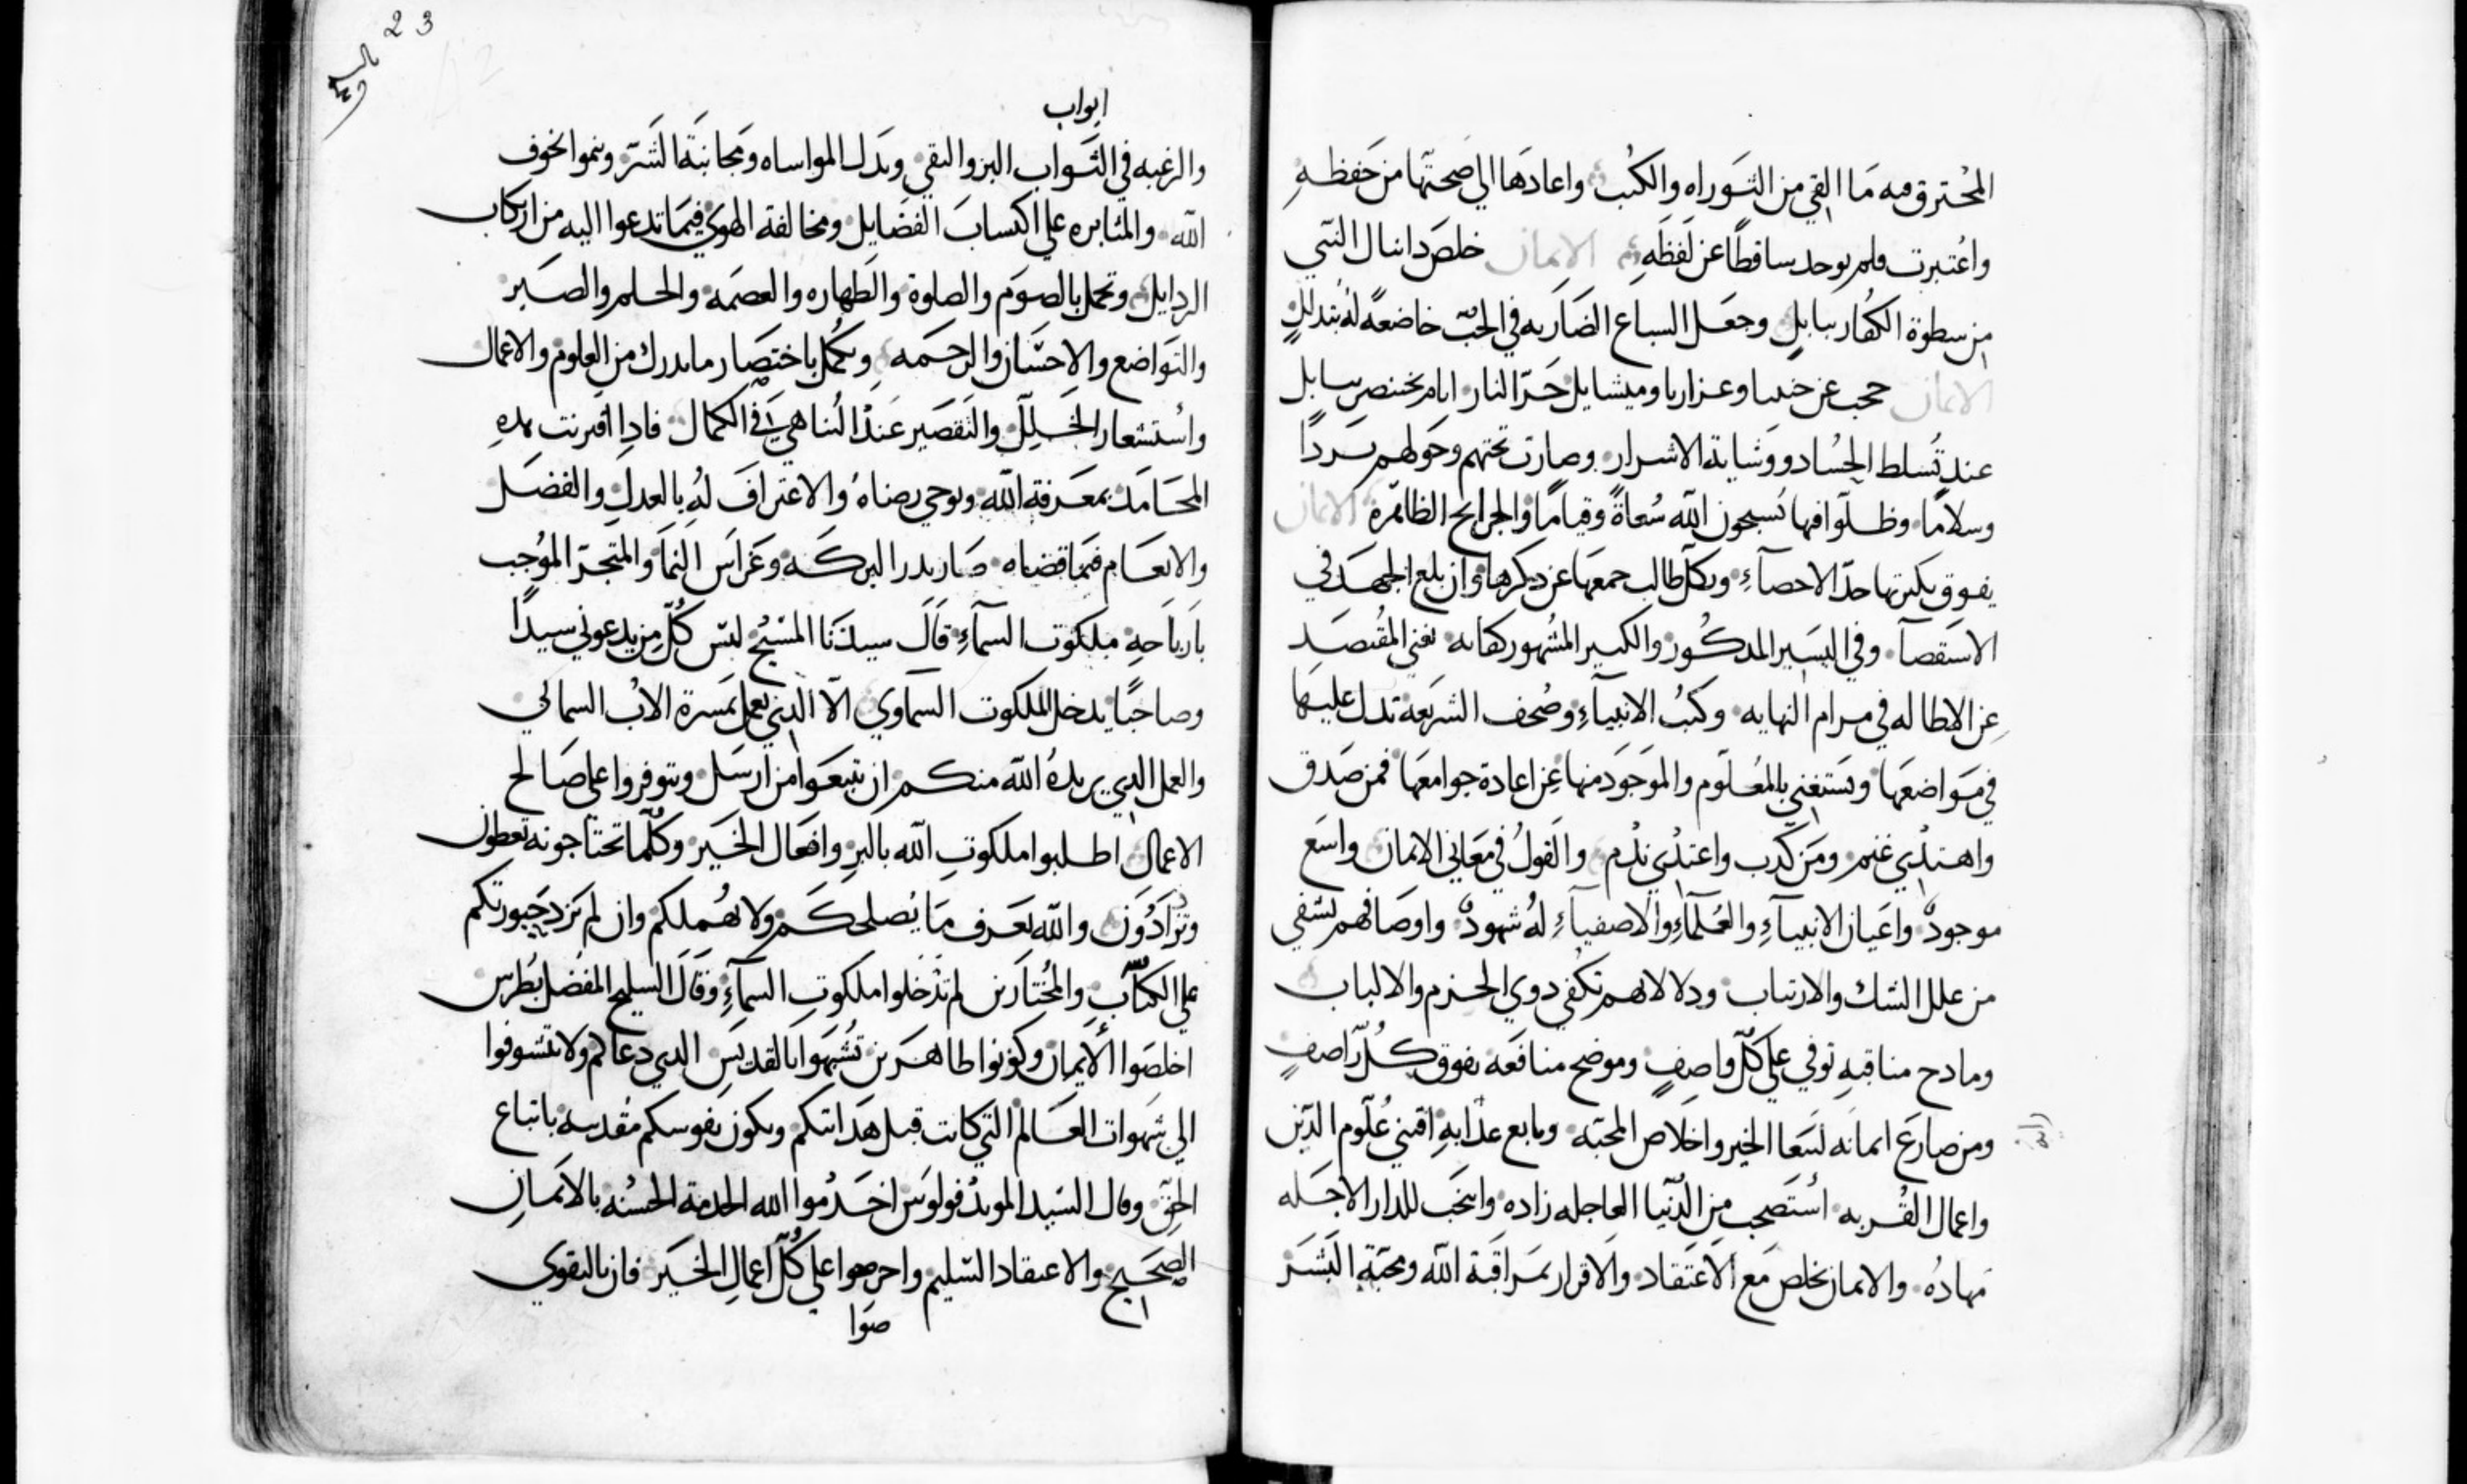 المحترق فيه ما القي من التوراه والكتب واعادها الي صحتها من حفظه
واعتبرت فلم يوجد ساقطا عن لفظه الايمان خلص دانيال النبي
من سطوة الكفار ببابل وجعل السباع الضاريه في الجب خاضعه له بتدلل
الايمان حجب عن حننيا وعزاريا وميشايل حر النار ايام بختنصر ببابل
عند تسلط الحساد ووشاية الاشرار وصارت تحتهم وحولهم بردا
وسلاما وظلوا فيها يسبحون الله سعاة وقياما والجرايح الظاهرة الايمان
يفوق بكثرتها حد الاحصآء ويكل طالب جمعها عن ذكرها وان بلغ الجهد في
الاستقصآ وفي اليسير المدكور والكبير المشهور كفايه تغني المقتصد
عن الاطاله في مرام النهايه وكتب الانبيآء وصحف الشريعه تدل عليها
في مواضعها ويستغني بالمعلوم والموجود منها عن اعادة جوامعها فمن صدق
واهتدي غنم ومن كدب واعتدي ندم والقول في معاني الايمان واسع
موجود واعيان الانبيآء والعلمآء والاصفيآء له شهود واوصافهم تشفي
من علل الشك والارتياب ودلالاتهم تكفي دوي الحزم والالباب
ومادح مناقبه توفي علي كل واصف وموضح منافعه يفوق كل راصف
ومن صارع ايمانه لسعا الخير واخلاص المحبه وتابع عدابه اقتني علوم الدين
واعمال القربه استصحب من الدنيا العاجله زاده وانتخب للدار الاجله
مهاده والايمان يخلص مع الاعتقاد والاقرار بمراقبة الله ومحبة البشر
23
ابواب
والرغبه في الثواب البر والتقي وبدل المواساه ومجانبة الشر وينموا بخوف
الله والمثابره علي اكتساب الفضايل ومخالفة الهوي فيما تدعوا اليه من ارتكاب
الردايل وتجمل بالصوم والصلوة والطهاره والعصمه والحلم والصبر
والتواضع والاحسان والرحمه ويكمل باختصار ما يدرك من العلوم والاعمال
واستشعار الخلل والتقصير عند التناهي في الكمال فادا اقترنت هده
المحامد بمعرفة الله وتوخي رضاه والاعتراف له بالعدل والفضل
والانعام فيما قضاه صار بدر البركه وغراس النما والمتجر الموجب
بارباحه ملكوت السمآء قال سيدنا المسيح ليس كل من يدعوني سيدا
وصاحبا يدخل الملكوت السماوي الا الدي يعمل بمسرة الاب السمائي
والعمل الدي يريده الله منكم ان تتبعوا من ارسل وتتوفروا علي صالح
الاعمال اطلبوا ملكوت الله بالبر وافعال الخير وكلما تحتاجونه تعطون
وتزادون والله يعرف ما يصلحكم ولا يهملكم وان لم تزد خيورتكم
علي الكتاب والمختارين لم تدخلوا ملكوت السمآء وقال السليح المفضل بطرس
اخلصوا الايمان وكونوا طاهرين تشبهوا بالقديس الدي دعاكم ولا تتشوفوا
الي شهوات العالم التي كانت قبل هدايتكم وتكون نفوسكم مقدسه باتباع
الحق وقال السيد المويد فولوس اخدموا الله الخدمة الحسنه بالايمان
الصحيح والاعتقاد السليم واحرصوا علي كل اعمال الخير فان بالتقوي
صوا